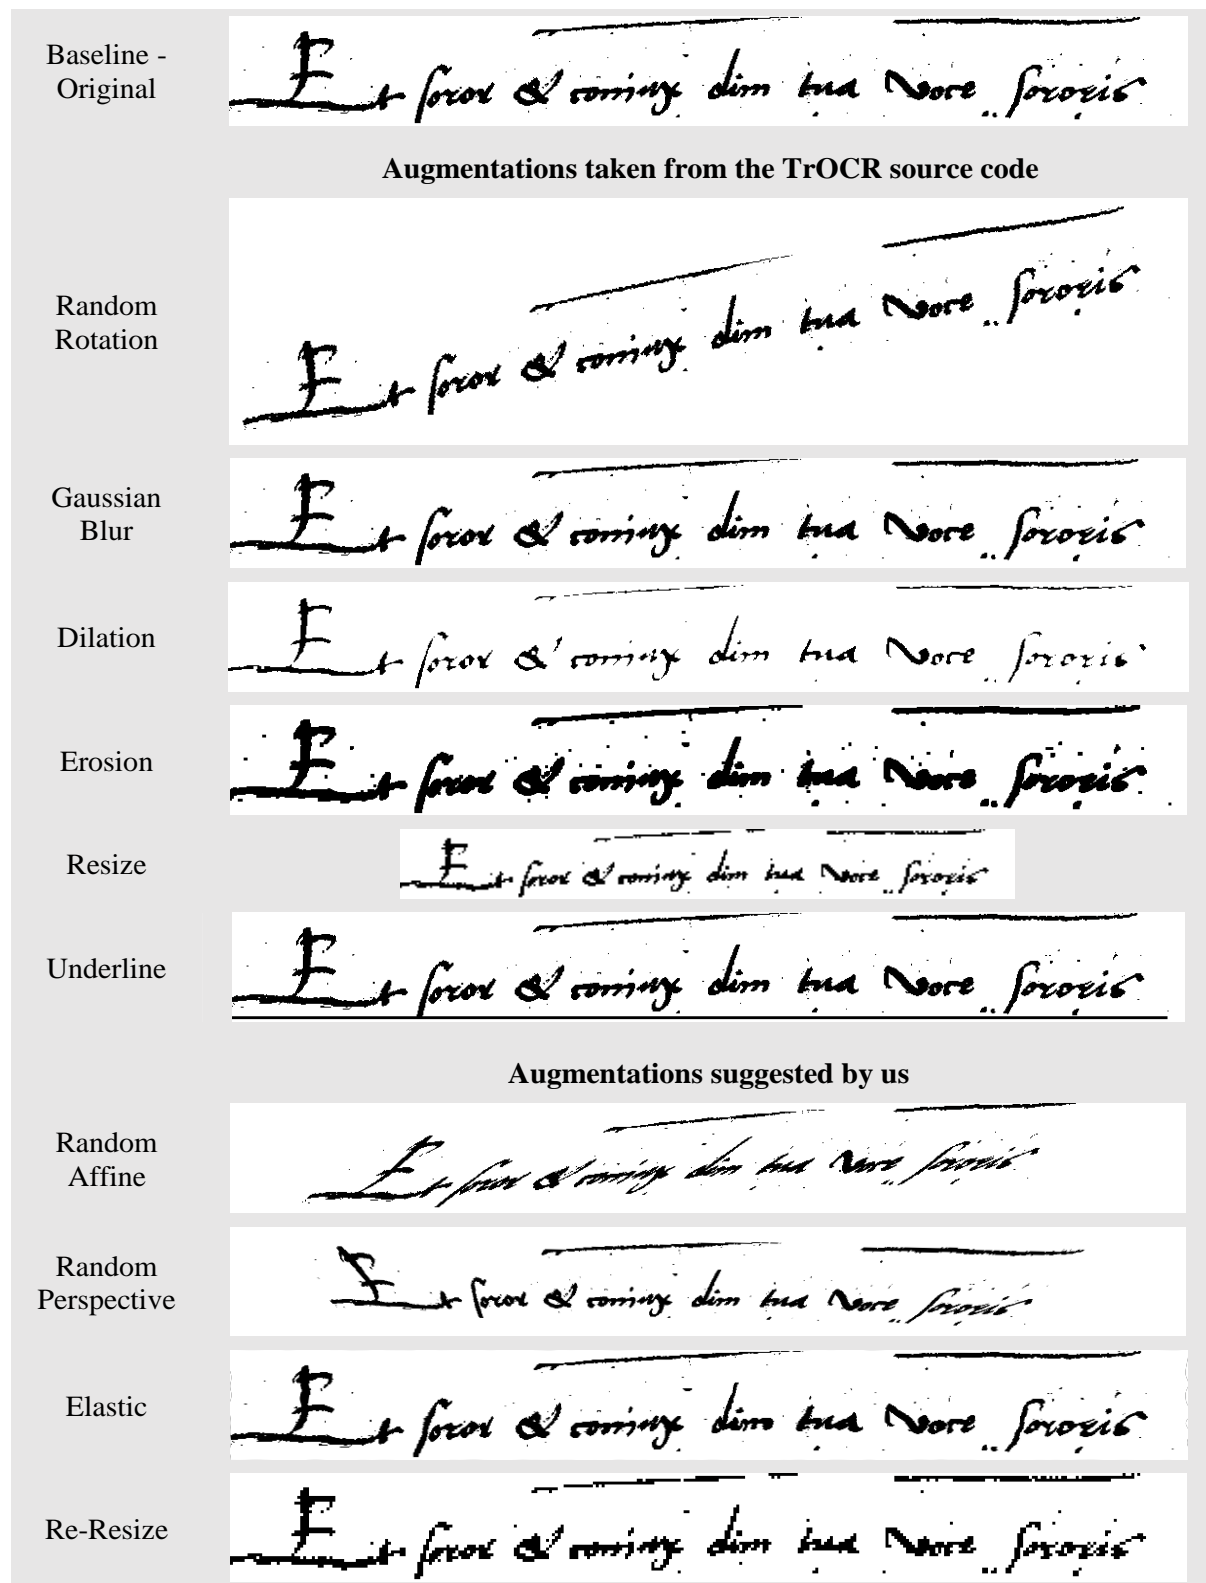 Baseline -
Original
Et soror & coniux dim tua Voce sororis
Augmentations taken from the TrOCR source code
Random
Rotation
Et soror & coniux dim tua Voce sororis
Gaussian
Blur
Et soror & coniux dim tua Voce sororis
Dilation
Et soror & coniux dim tua Voce sororis
Erosion
Et soror & coniux dim tua Voce sororis
Resize
Et soror & coniux dim tua Voce sororis
Underline
Et soror & coniux dim tua Voce sororis
Augmentations suggested by us
Random
Affine
Et soror & coniux dim tua Voce sororis
Random
Perspective
Et soror & coniux dim tua Voce sororis
Elastic
Et soror & coniux dim tua Voce sororis
Re-Resize
Et soror & coniux dim tua Voce sororis